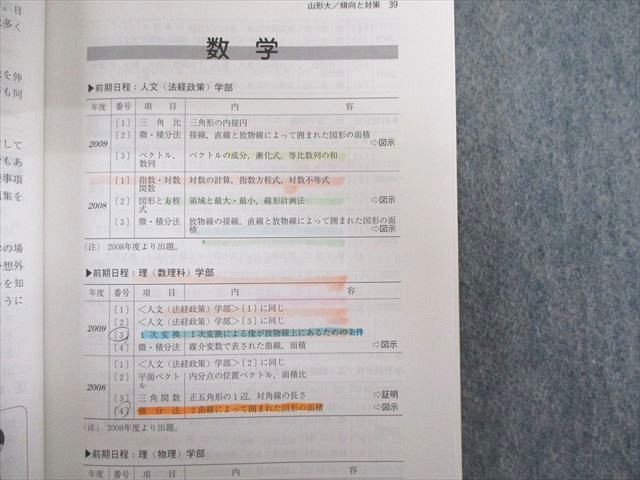 山形大／傾向と対策 39
数 学
▶前期日程：人文（法経政策）学部
年度 番号 項 目 内 容
2009
〔1〕 三 角 比 三角形の内接円
〔2〕 微・積分法 接線，直線と放物線によって囲まれた図形の面積
⇨図示
〔3〕 ベクトル，数列 ベクトルの成分，漸化式，等比数列の和
2008
〔1〕 指数・対数関数 対数の計算，指数方程式，対数不等式
〔2〕 図形と方程式 領域と最大・最小，線形計画法 ⇨図示
〔3〕 微・積分法 放物線の接線，直線と放物線によって囲まれた図形の面積 ⇨図示
（注） 2008年度より出題。
▶前期日程：理（数理科）学部
年度 番号 項 目 内 容
2009
〔1〕 ＜人文（法経政策）学部＞〔1〕に同じ
〔2〕 ＜人文（法経政策）学部＞〔3〕に同じ
〔3〕 1 次 変 換 1次変換による像が放物線上にあるための条件
〔4〕 微・積分法 媒介変数で表された曲線，面積 ⇨図示
2008
〔1〕 ＜人文（法経政策）学部＞〔2〕に同じ
〔2〕 平面ベクトル 内分点の位置ベクトル，面積比
〔3〕 三 角 関 数 正五角形の1辺，対角線の長さ ⇨証明
〔4〕 積 分 法 2曲線によって囲まれた図形の面積 ⇨図示
（注） 2008年度より出題。
▶前期日程：理（物理）学部
年度 番号 項 目 内 容